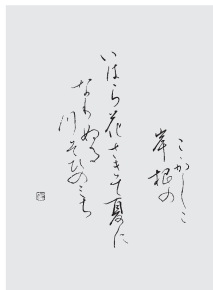 こゝかしこ
岸根の
いはら花さきて夏に
なりぬる
川そひのみち